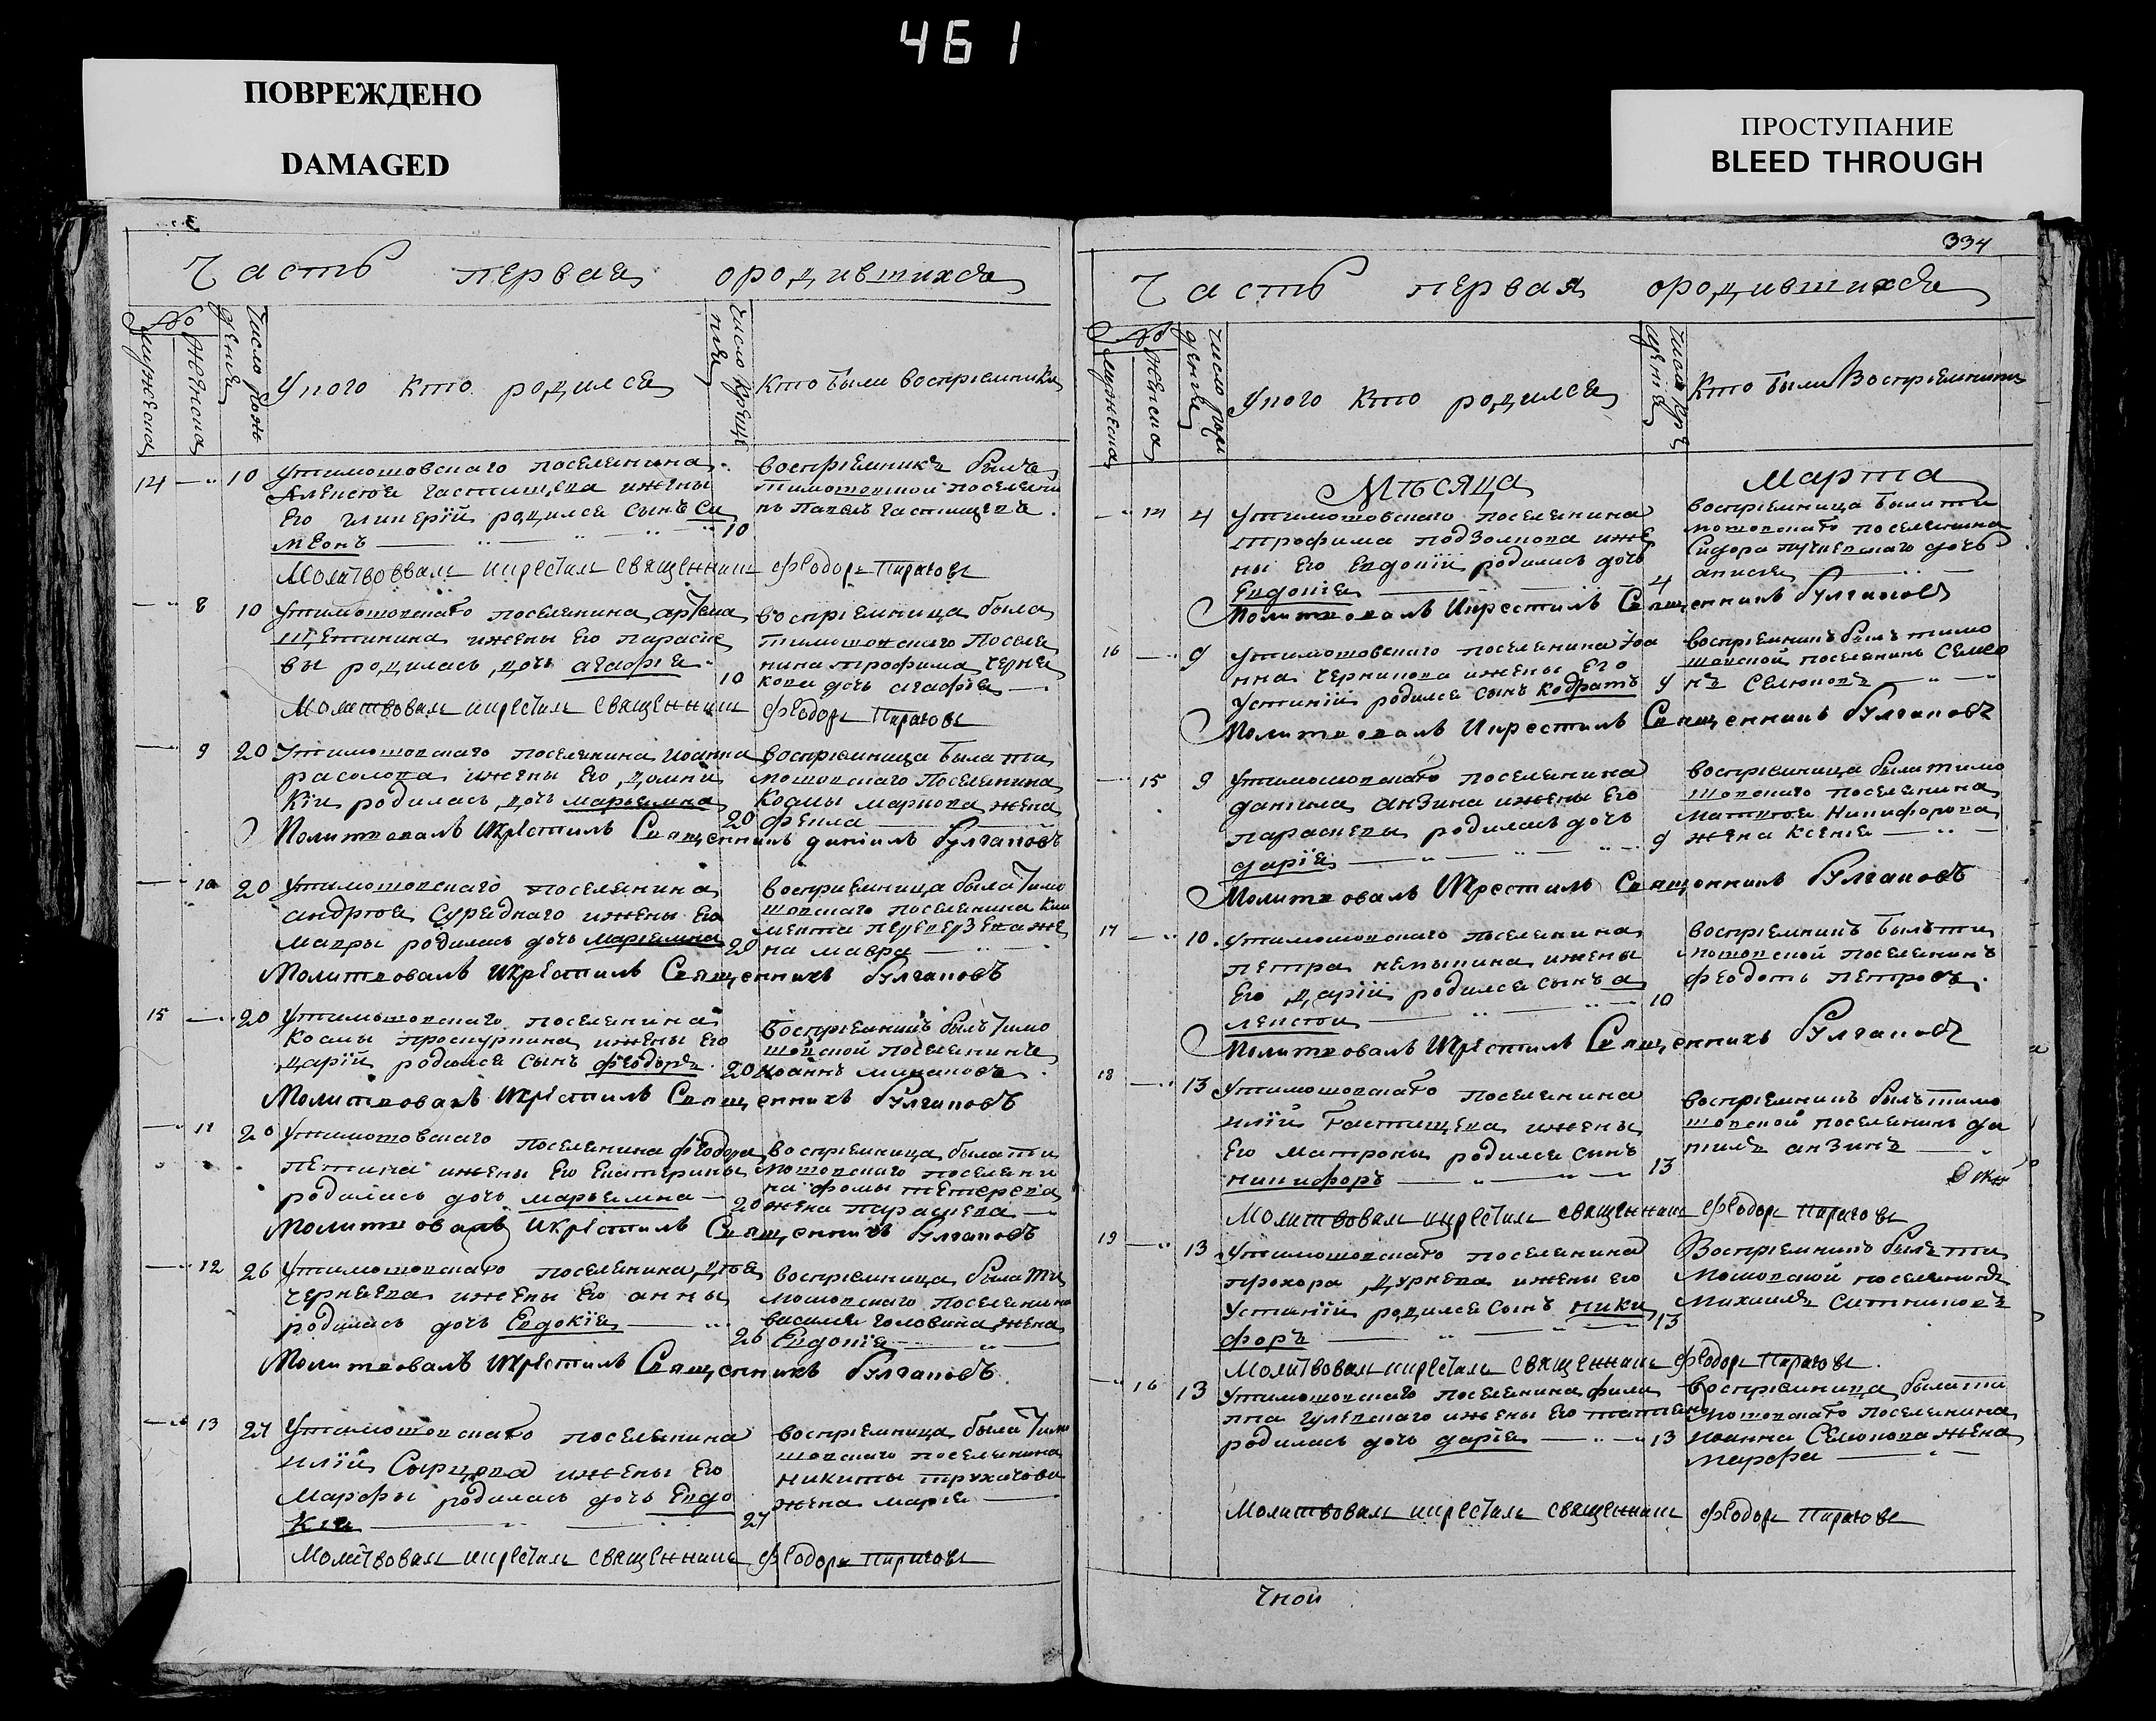 461
ПОВРЕЖДЕНО
DAMAGED
ПРОСТУПАНИЕ
BLEED THROUGH
Часть первая ородившихся
№
мужеска
женска
число рож
дения
Уного кто родился
число креще
ния
Кто были восприемники
14 10 Утимошовскаго поселянина
Алексея Частищева ижены
Его гликерїй родился сынъ Си
меонъ 10
восприемникъ былъ
тимошовской поселяни
нъ Павелъ Частищевъ
Молитвовалъ икрестилъ священникъ Феодоръ Пироговъ
8 10 Утимошовскаго поселянина
Щетинина ижены Его параске
вы родилась дочь агафїя 10
восприемница была
тимошовскаго поселя
нина трофима
дочь агафїя
Молитвовалъ икрестилъ священникъ Феодоръ Пироговъ
9 20 Утимошовскаго поселянина иоанна
расолова ижены Его домни
кїи родилась дочь марьямна 20
восприемница была ти
мошовскаго поселянина
Космы маркова жена
фекла
Молитвовалъ Икрестилъ Священникъ данїилъ Булгаковъ
10 20 Утимошовскаго поселянина
андрея Средняго ижены Его
мавры родилась дочь марїямна 20
восприемница была тимо
шовскаго поселянина Кли
мента переверзева же
на мавра
Молитвовалъ Икрестилъ Священникъ Булгаковъ
15 20 Утимошовскаго поселянина
Космы проскурнина ижены Его
дарїй родился сынъ феодоръ 20
восприемникъ былъ тимо
шовской поселянинъ
иоаннъ
Молитвовалъ Икрестилъ Священникъ Булгаковъ
11 20 Утимошовскаго поселянина феодора
петина ижены Его Екатерины
родилась дочь марьямна 20
восприемница была ти
мошовскаго поселяни
на фомы тетерева
жена параскева
Молитвовалъ Икрестилъ Священникъ Булгаковъ
12 26 Утимошовскаго поселянина
чернаева ижены Его анны
родилась дочь Евдокїя 26
восприемница была ти
мошовскаго поселянина
василия головина жена
Евдокїя
Молитвовалъ Икрестилъ Священникъ Булгаковъ
13 27 Утимошовскаго поселянина
илїй Сырцова ижены Его
Марфы родилась дочь Евдо
кїя 27
восприемница была тимо
шовскаго поселянина
никиты трухачова
жена марїя
Молитвовалъ икрестилъ священникъ Феодоръ Пироговъ
334
Часть первая ородившихся
№
мужеска
женска
число рож
дения
Уного кто родился
число кре
щения
Кто были Восприемники
Мѣсяца Марта
14 4 Утимошовскаго поселянина
трофима подзолкова иже
ны Его Евдокїй родилась дочь
Евдокїя 4
восприемница была ти
мошовскаго поселянина
Сидора дочь
анисия
Молитвовалъ Икрестилъ Священникъ Булгаковъ
16 9 Утимошовскаго поселянина иоа
нна черникова ижены Его
Устинїй родился сынъ кодратъ 9
восприемникъ былъ тимо
шовской поселянинъ Симео
нъ Селюковъ
Молитвовалъ Икрестилъ Священникъ Булгаковъ
15 9 Утимошовскаго поселянина
данїила анзина ижены Его
параскевы родилась дочь
дарїя 9
восприемница была тимо
шовскаго поселянина
матвея Никифорова
жена ксения
Молитвовалъ Икрестилъ Священникъ Булгаковъ
17 10 Утимошовскаго поселянина
петра немыкина ижены
Его дарїй родился сынъ а
лексей 10
восприемникъ былъ ти
мошовской поселянинъ
феодотъ петровъ
Молитвовалъ Икрестилъ Священникъ Булгаковъ
18 13 Утимошовскаго поселянина
илїй Частищева ижены
Его матроны родился сынъ
никифоръ 13
восприемникъ былъ тимо
шовской поселянинъ да
нилъ анзинъ
Молитвовалъ икрестилъ священникъ Феодоръ Пироговъ
19 13 Утимошовскаго поселянина
прохора дурнева ижены Его
Устинїи родился сынъ ники
форъ 13
Восприемникъ былъ ти
мошовской поселянинъ
Михаилъ Ситниковъ
Молитвовалъ икрестилъ священникъ Феодоръ Пироговъ
16 13 Утимошовскаго поселянина фили
ппа гулевскаго ижены Его татияны
родилась дочь дарїя 13
восприемница была ти
мошовскаго поселянина
иоанна Селюкова жена
марфа
Молитвовалъ икрестилъ священникъ Феодоръ Пироговъ
Чной